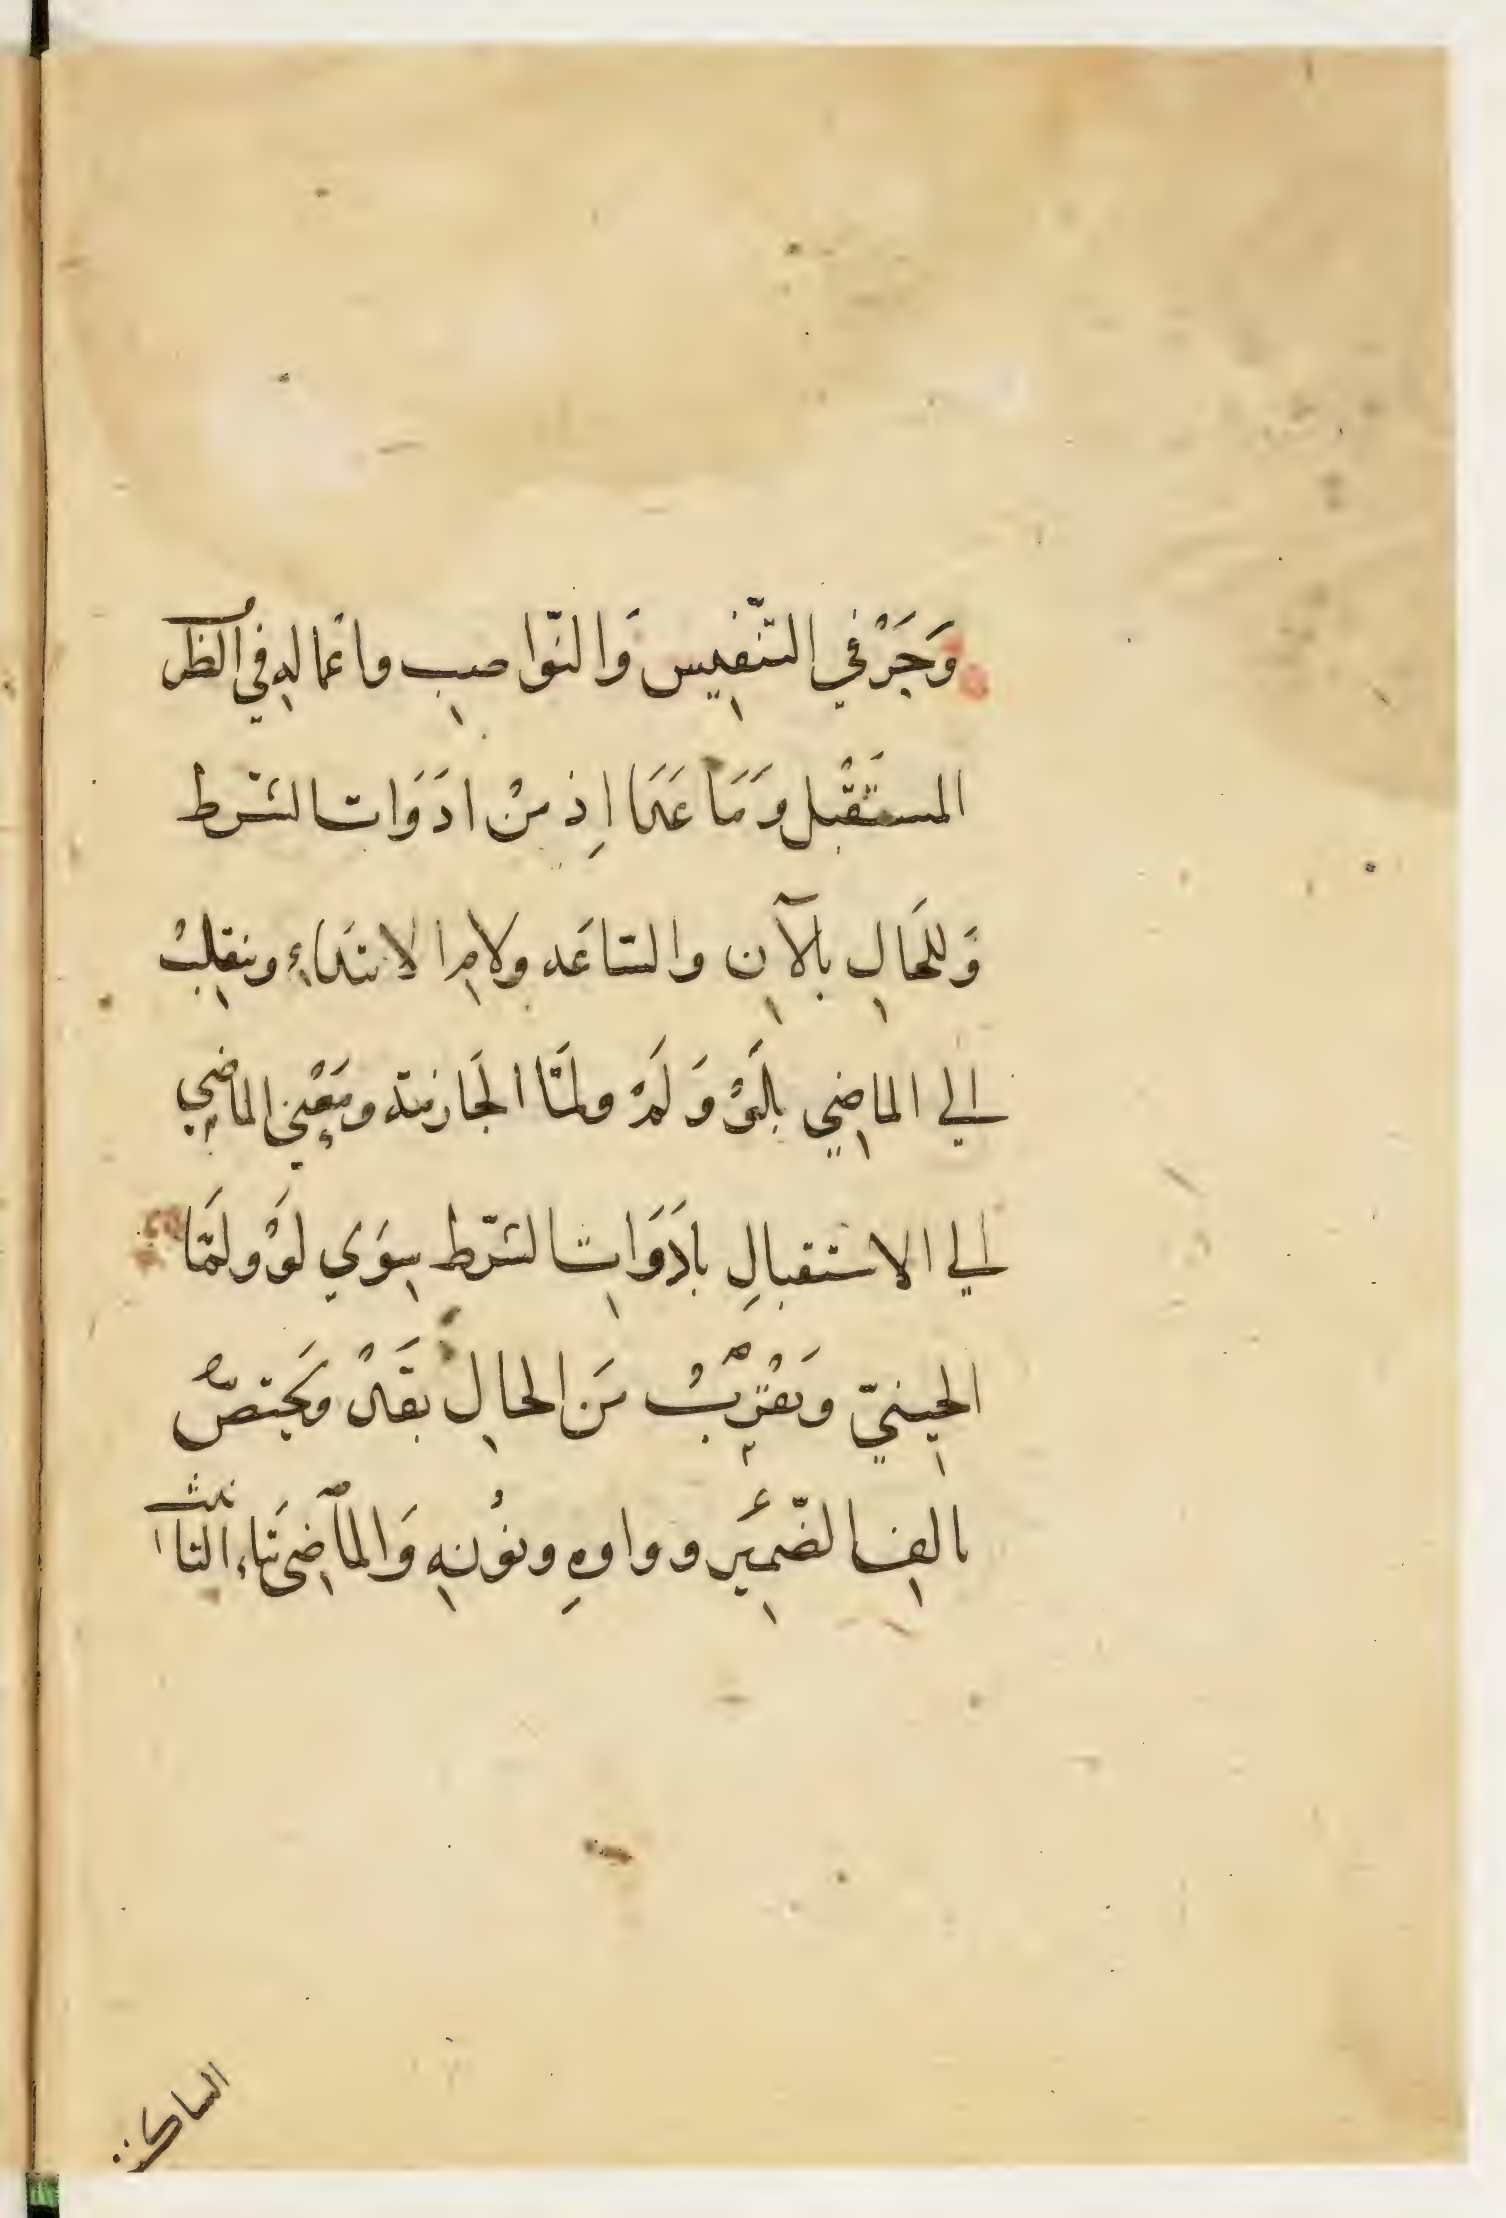 وَحَرْفي التَّنفِيس وَالنّوا صبِ واعمالِه في الظرف
المستَقْبل وَمَا عَدَا اِذ مِنْ ادَوَات الشّرط
وَللحَالِ بالآنِ والسّاعَه ولامِ الابتدَاءِ وينقلِبُ
الي الماضِي بلَوْ وَلَمْ ولمَّا الجَازمَة ومَعْني الماضِي
الي الاستقبالِ بادَوَاتِ الشّرطِ سِوَي لَوْ ولمَّا
الحِينيّ ويَقْرُبُ مَن الحالِ بقَدْ ويَختصّ
بالفِ الضّمِير وواوهِ ونوُنهِ وَالماضِي بتَاء التانيث
الساكنة